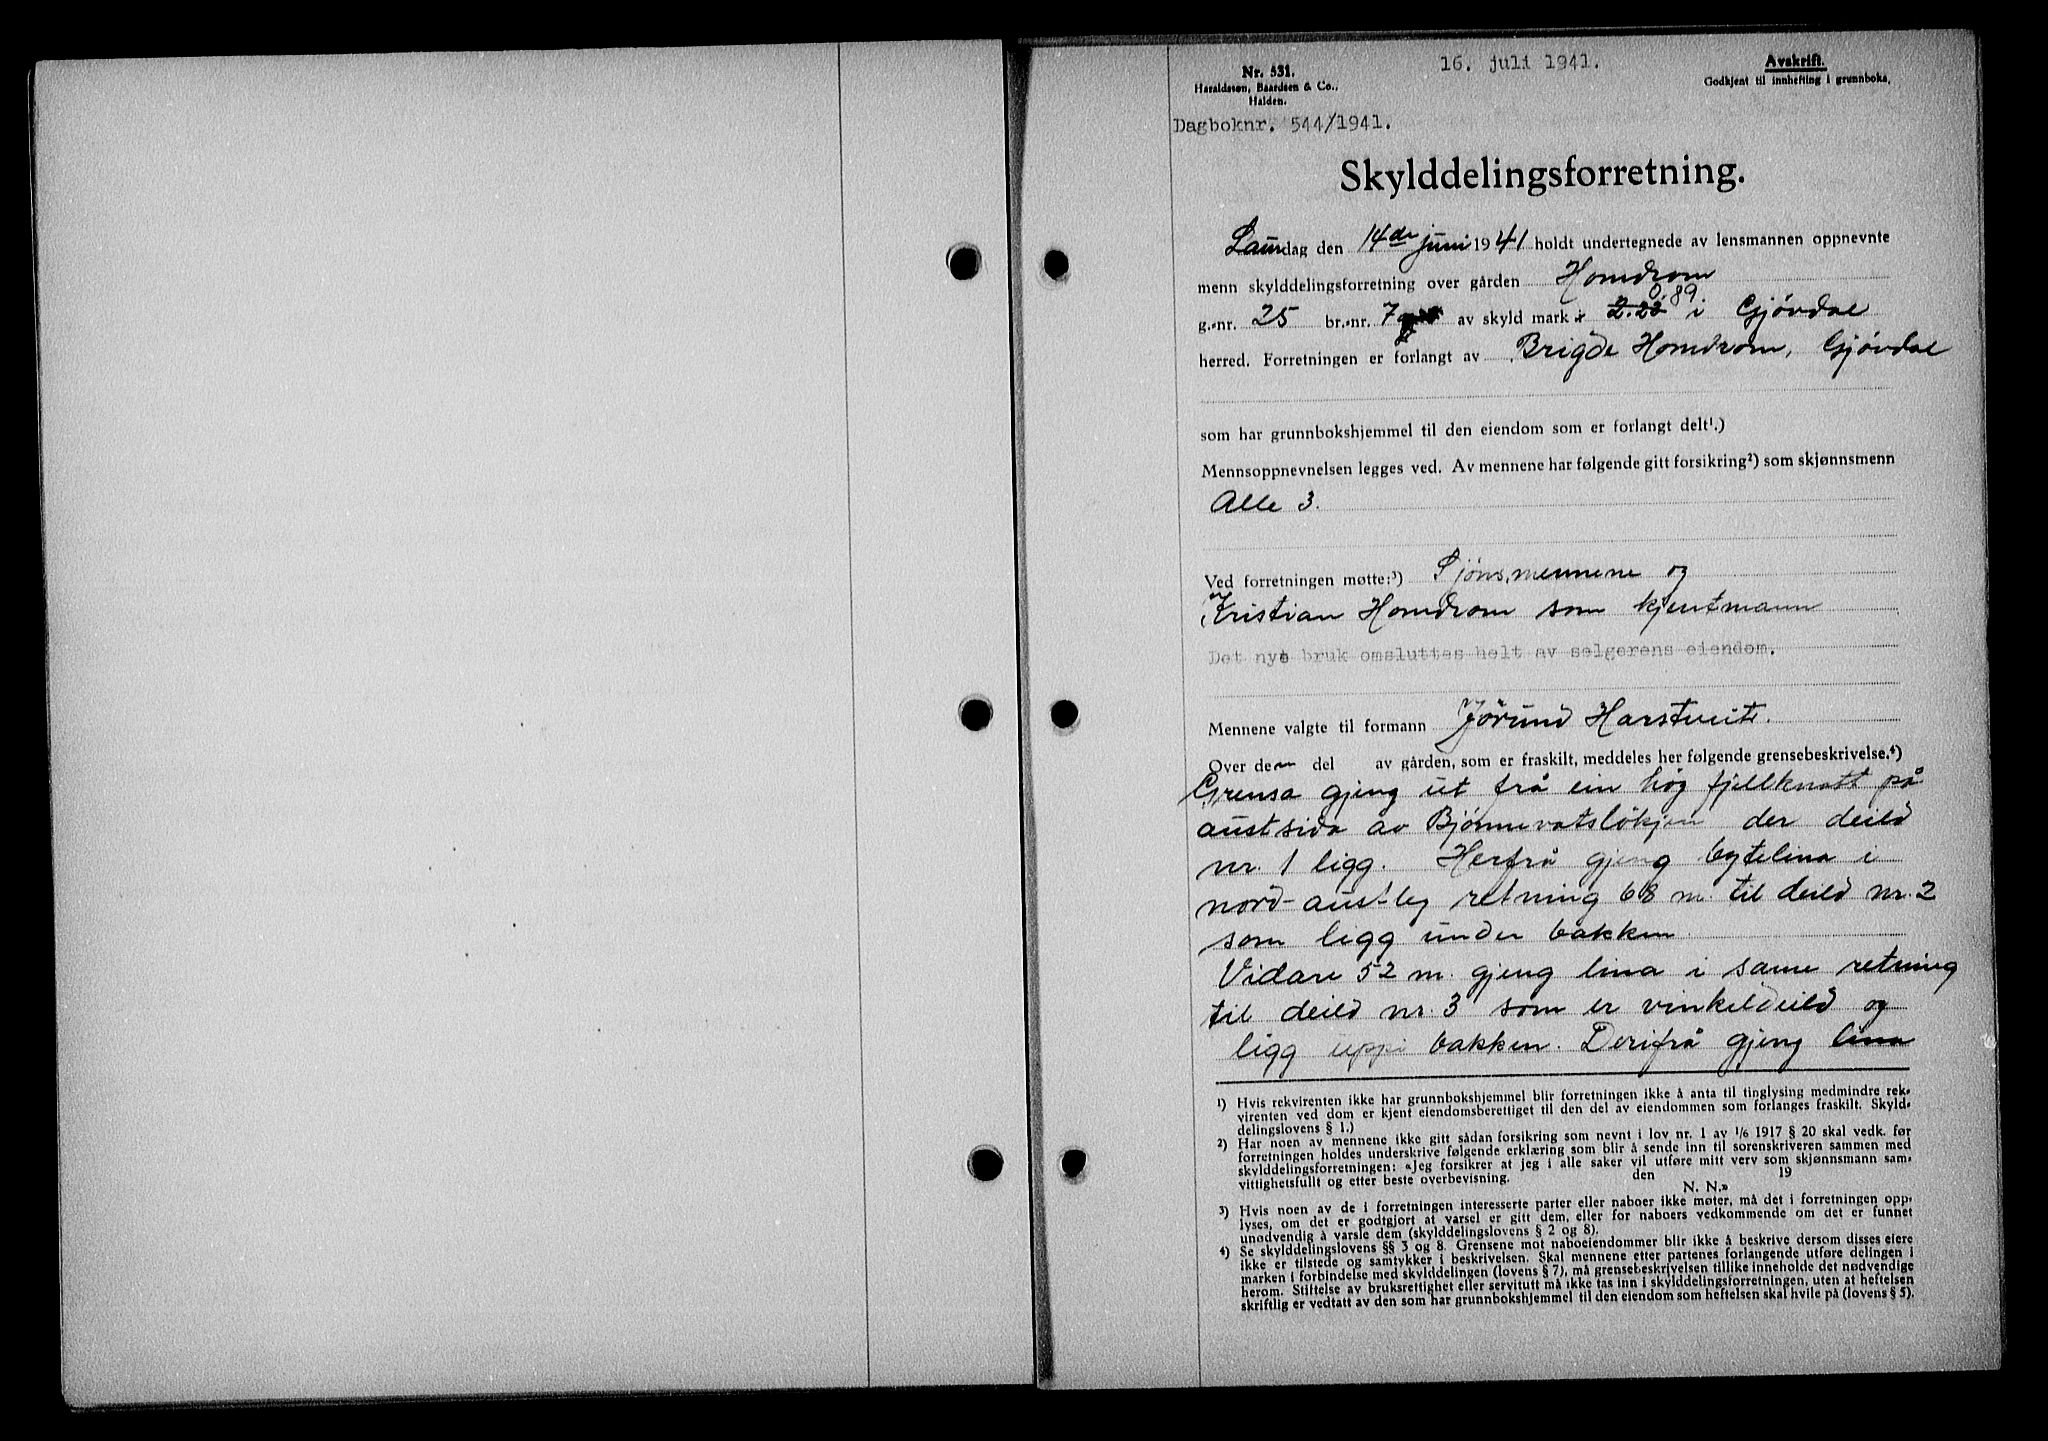 Nr. 531.
Haraldssøn, Baardsen & Co.,
Halden.
16. juli 1941.
Avskrift.
Godkjent til innhefting i grunnboka.
Dagboknr. 544/1941.
Skylddelingsforretning.
Laurdag den 14de juni 1941 holdt undertegnede av lensmannen oppnevnte
menn skylddelingsforretning over gården Homdrom
0.89
g.-nr. 25 br.-nr. 7 av skyld mark 2.22 i Gjøvdal
herred. Forretningen er forlangt av Brigde Homdrom, Gjøvdal
som har grunnbokshjemmel til den eiendom som er forlangt delt¹.)
Mennsoppnevnelsen legges ved. Av mennene har følgende gitt forsikring²) som skjønnsmenn
Alle 3.
Ved forretningen møtte:³) Sjønsmennene og
Kristian Homdrom som kjentmann
Det nye bruk omsluttes helt av selgerens eiendom.
Mennene valgte til formann Jørund Harstveit.
Over den del av gården, som er fraskilt, meddeles her følgende grensebeskrivelse.⁴)
Grensa gjeng ut frå ein høg fjellknatt på
austsida av Bjønnevatsløkjen der deild
nr. 1 ligg. Herfrå gjeng bytelina i
nord-austleg retning 68 m. til deild nr. 2
som ligg under bakken.
Vidare 52 m. gjeng lina i same retning
til deild nr. 3 som er vinkeldeild og
ligg uppi bakken. Derifrå gjeng lina
1) Hvis rekvirenten ikke har grunnbokshjemmel blir forretningen ikke å anta til tinglysing medmindre rek-
virenten ved dom er kjent eiendomsberettiget til den del av eiendommen som forlanges fraskilt. Skyld-
delingslovens § 1.)
2) Har noen av mennene ikke gitt sådan forsikring som nevnt i lov nr. 1 av 1/6 1917 § 20 skal vedk. før
forretningen holdes underskrive følgende erklæring som blir å sende inn til sorenskriveren sammen med
skylddelingsforretningen: «Jeg forsikrer at jeg i alle saker vil utføre mitt verv som skjønnsmann sam-
vittighetsfullt og etter beste overbevisning. den 19
N. N.»
3) Hvis noen av de i forretningen interesserte parter eller naboer ikke møter, må det i forretningen opp-
lyses, om det er godtgjort at varsel er gitt dem, eller for naboers vedkommende om det er funnet
unødvendig å varsle dem (skylddelingslovens § 2 og 8).
4) Se skylddelingslovens §§ 3 og 8. Grensene mot naboeiendommer blir ikke å beskrive dersom disses eiere
ikke er tilstede og samtykker i beskrivelsen. Skal mennene etter partenes forlangende utføre delingen i
marken i forbindelse med skylddelingen (lovens § 7), må grensebeskrivelsen tillike inneholde det nødvendige
herom. Stiftelse av bruksrettighet eller servitutt må ikke tas inn i skylddelingsforretningen, uten at heftelsen
skriftlig er vedtatt av den som har grunnbokshjemmel til den eiendom som heftelsen skal hvile på (lovens § 5).